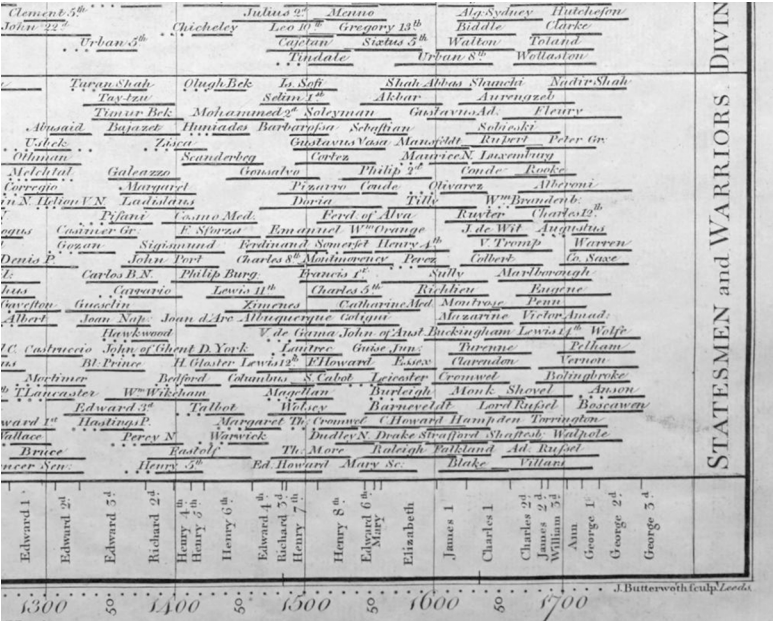 Clement 5th Julius 2d Menno Alg: Sydney Hutcheson
John 22d Chicheley Leo 10th Gregory 13th Biddle Clarke
Urban 5th Cajetan Sixtus 5th Walton Toland
Tindale Urban 8th Wollaston
DIVIN
Turan Shah Olugh Bek Is. Sofi Shah Abbas Shunchi Nadir Shah
Tay-tzu Selim 1st Akbar Aurengzeb
Timur Bek Mohammed 2d Soleyman Gustavus Ad. Fleury
Abusaid Bajazet Huniades Barbarossa Sebastian Sobieski
Usbek Zisca Gustavus Vasa Mansfeldt Rupert Peter Gr.
Othman Scanderbeg Cortez Maurice N. Luxemburg
Melchtal Galeazzo Gonsalvo Philip 2d Conde Rooke
Corregio Margaret Pizarro Conde Olivarez Alberoni
in N. Helion V.N Ladislaus Doria Tilly Wm Brandenb:
Pisani Cosmo Med. Ferd. of Alva Ruyter Charles 12th
ogus Casimer Gr. F. Sforza Emanuel Wm Orange J. de Wit Augustus
Gozan Sigismund Ferdinand Somerset Henry 4th V. Tromp Warren
Denis P. John Port Charles 8th Montmorency Perez Colbert Co. Saxe
l: Carlos B.N. Philip Burg. Francis 1st Sully Marlborough
hus Carrario Lewis 11th Charles 5th Richlieu Eugene
Gaveston Gueselin Ximenes Catharine Med. Montrose Penn
Albert Joan Nap: Joan d'Arc Albuquerque Coligni Mazarine Victor Amad:
Hawkwood V. de Gama John of Aust Buckingham Lewis 14th Wolfe
l C. Castruccio John of Ghent D. York Lautrec Guise Jun: Turenne Pelham
us Bl: Prince H. Gloster Lewis 12th F. Howard Essex Clarendon Vernon
Mortimer Bedford Columbus S. Cabot Leicester Cromwel Bolingbroke
th T. Lancaster Wm Wikeham Magellan Burleigh Monk Shovel Anson
Edward 3d Talbot Wolsey Barneveldt Lord Russel Boscawen
ward 1st Hastings P. Margaret Th: Cromwel C. Howard Hampden Torrington
Wallace Percy N Warwick Dudley N. Drake Strafford Shaftesb: Walpole
Bruce Fastolf Th: More Raleigh Falkland Ad. Russel
ncer Sen: Henry 5th Ed. Howard Mary Sc: Blake Villars
STATESMEN and WARRIORS
Edward 1st
Edward 2d
Edward 3d
Richard 2d
Henry 4th
Henry 5th
Henry 6th
Edward 4th
Richard 3d
Henry 7th
Henry 8th
Edward 6th
Mary
Elizabeth
James 1
Charles 1
Charles 2d
James 2d
William 3d
Ann
George 1st
George 2d
George 3d
J. Butterworth sculp. Leeds
1300 50 1400 50 1500 50 1600 50 1700